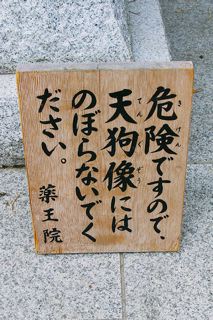 危険ですので、
天狗像には
のぼらないでく
ださい。
薬王院